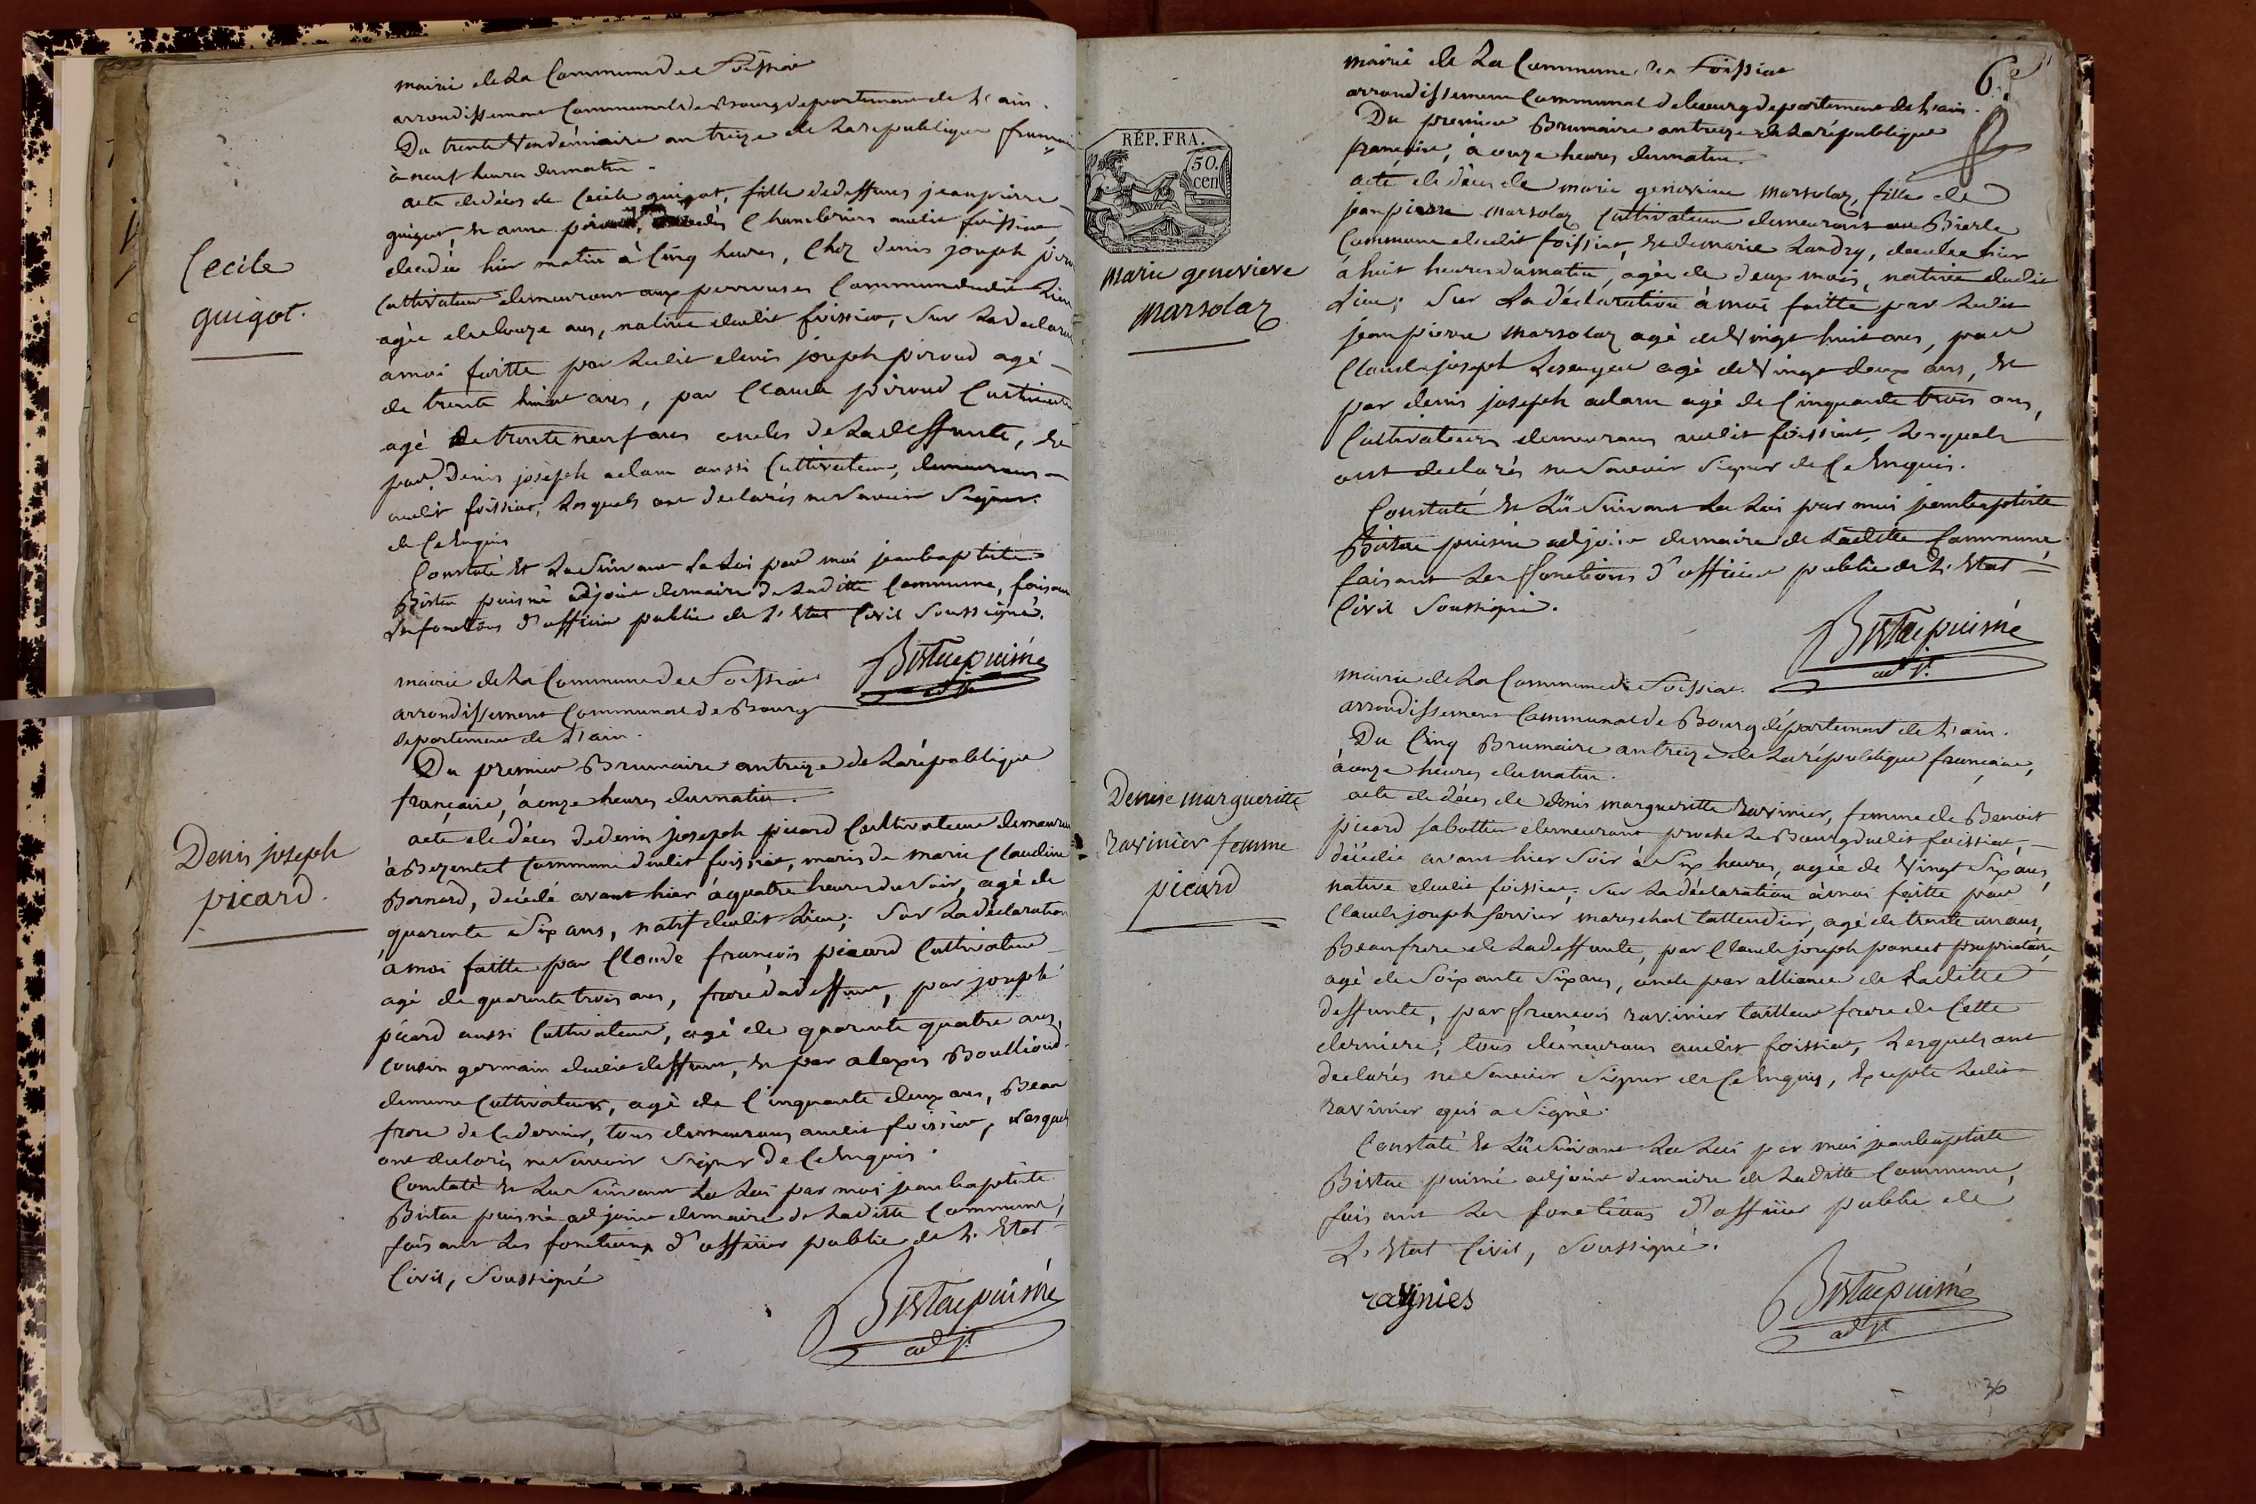 mairie de La Commune de Foissiat
arrondissement Communal de Bourg departement de L'ain.
Du trente Vendémiaire an treize de La republique
à neuf heures du matin.
acte de décès de Cecile guigot, fille de deffunts jean pierre
guigot et anne audit foissiat
decedée hier matin à Cinq heures, Chez denis joseph
Cultivateur demeurant aux Commune dudit Lieu
agée de douze ans, native dudit foissiat, Sur La
a moi faitte par Ledit denis joseph piroud agé
de trente huit ans, par Claude piroud
agé de trente neuf ans oncles de La deffunte, et
par Denis joseph adam aussi Cultivateur, demeurans
audit foissiat, Lesquels ont declarés ne Savoir Signer
de Ce Enquis
Constaté et Lu Suivant La Loi par moi jean baptiste
Bistac puisné adjoint du maire de Laditte Commune,
les fonctions d'officier public de L'Etat Civil Soussigné.
Bistac puisné
adjt
Cecile
guigot.
mairie de La Commune de Foissiat
arrondissement Communal de Bourg
departement de L'ain.
Du premier Brumaire an treize de La république
française, à onze heures du matin.
acte de décès de denis joseph picard Cultivateur
à Bezentet Commune dudit foissiat, mari de marie Claudine
Bernard, décédé avant hier à quatre heures du Soir, agé de
quarente Six ans, natif dudit Lieu; Sur La déclaration
a moi faitte par Claude françois picard Cultivateur
agé de quarente trois ans, frere du deffunt, par joseph
picard aussi Cultivateur, agé de quarente quatre ans,
Cousin germain dudit deffunt, et par alexis Boullioud
demême Cultivateur, agé de Cinquante deux ans, Beau
frere de Ce dernier, tous demeurans audit foissiat,
ont declarés ne Savoir Signer de Ce Enquis.
Constaté et Lu Suivant La Loi par moi jean baptiste
Bistac puisné adjoint du maire de Laditte Commune,
faisant Les fonctions d'officier public de L'Etat
Civil, Soussigné
Bistac puisné
adjt
Denis joseph
picard.
6.
mairie de La Commune de Foissiat
arrondissement Communal de bourg departement de L'ain.
Du premier Brumaire an treize de La république
française, à onze heures du matin.
acte de décès de marie genevieve marsolaz, fille de
jean pierre marsolaz Cultivateur demeurant au
Commune dudit foissiat, et de marie Landry, décédée hier
à huit heures du matin, agée de deux mois, native dudit
Lieu; Sur La déclaration à moi faitte par Ledit
jean pierre marsolaz agé de Vingt huit ans, par
Claude joseph agé de Vingt deux ans, et
par denis joseph adam agé de Cinquante trois ans,
Cultivateurs demeurans audit foissiat, Lesquels
ont declarés ne Savoir Signer de Ce Enquis.
Constaté et Lu Suivant La Loi par moi jean baptiste
Bistac puisné adjoint du maire de Laditte Commune,
faisant Les fonctions d'officier public de L'Etat
Civil Soussigné.
Bistac puisné
adjt
RÉP. FRA.
50.
cen
marie genevieve
marsolaz
mairie de La Commune de Foissiat.
arrondissement Communal de Bourg département de L'ain.
Du Cinq Brumaire an treize de La république française,
à onze heures du matin.
acte de décès de denise margueritte ravinier, femme de Benoit
picard Sabottier demeurant proche Le Bourg dudit foissiat
décédée avant hier Soir à Six heures, agée de Vingt Six ans,
native dudit foissiat; Sur La déclaration à moi faitte par
Claude joseph mareschal tallendier, agé de trente un ans,
Beaufrere de La deffunte, par Claude joseph poncet propriétaire,
agé de Soixante Six ans, oncle par alliance de Laditte
deffunte, par françois ravinier tailleur frere de Cette
derniere; tous demeurans audit foissiat, Lesquels ont
declarés ne Savoir Signer de Ce Enquis, Excepté Ledit
ravinier qui a Signé.
Constaté et Lu Suivant La Loi par moi jean baptiste
Bistac puisné adjoint du maire de Laditte Commune,
faisant Les fonctions d'officier public de
L'Etat Civil, Soussigné.
ravinies
Bistac puisné
adjt
Denise margueritte
ravinier femme
picard
36